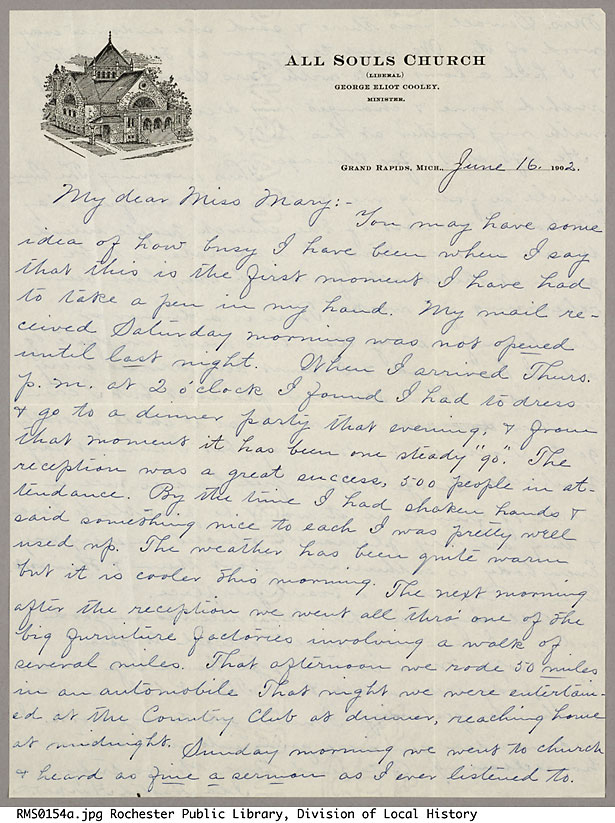 ALL SOULS CHURCH
(LIBERAL)
GEORGE ELIOT COOLEY,
MINISTER.
GRAND RAPIDS, MICH., June 16. 1902.
My dear Miss Mary:-
You may have some
idea of how busy I have been when I say
that this is the first moment I have had
to take a pen in my hand. My mail re-
ceived Saturday morning was not opened
until last night. When I arrived Thurs.
p. m. at 2 o'clock I found I had to dress
& go to a dinner party that evening, & from
that moment it has been one steady "go". The
reception was a great success, 500 people in at-
tendance. By the time I had shaken hands &
said something nice to each I was pretty well
used up. The weather has been quite warm
but it is cooler this morning. The next morning
after the reception we went all thro' one of the
big furniture factories involving a walk of
several miles. That afternoon we rode 50 miles
in an automobile That night we were entertain-
ed at the Country Club at dinner, reaching home
at midnight. Sunday morning we went to church
& heard as fine a sermon as I ever listened to.
RMS0154a.jpg Rochester Public Library, Division of Local History